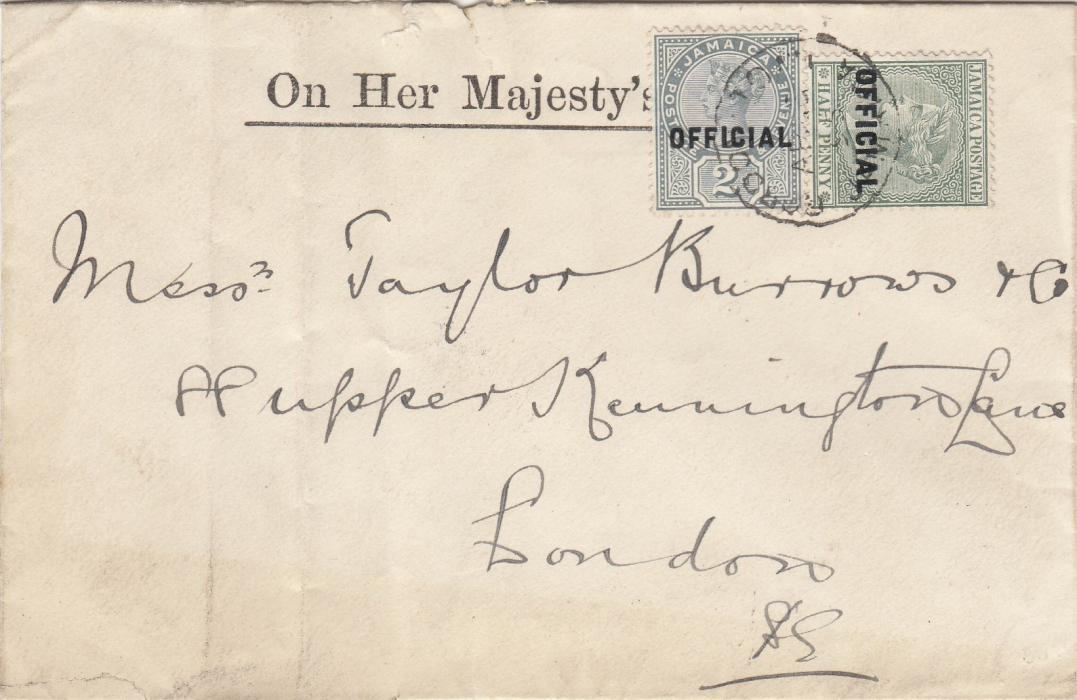 On Her Majesty's
JAMAICA
POSTAGE
REVENUE
OFFICIAL
2
JAMAICA POSTAGE
OFFICIAL
HALF PENNY
Messrs Taylor Burrows & Co
Upper Kennington Lane
London
SE